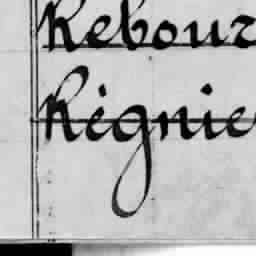 Rebour
Régnie